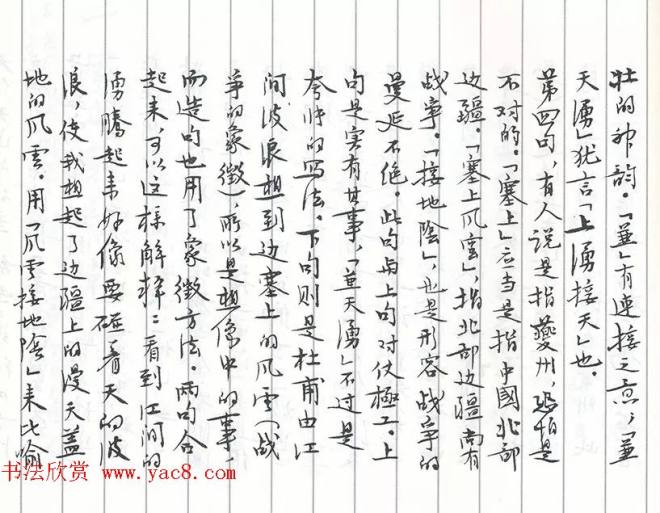 壮的神韵。「兼」有连接之意，「兼
天湧」犹言「上湧接天」也。
第四句，有人说是指夔州，恐怕是
不对的。「塞上」应当是指中國北部
边疆。「塞上风雲」，指北部边疆尚有
战事。「接地陰」，也是形容战争的
曼延不绝。此句与上句对仗極工。上
句是实有其事，「兼天湧」不过是
夸帅的写法。下句则是杜甫由江
间波浪想到边塞上的风雲（战
争的象徵），所以是想像中的事，
而造句也用了象徵方法。两句合
起来，可以这样解释：看到江间的
湧騰起来好像要碰着天的波
浪，使我想起了边疆上的漫天盖
地的风雲。用「风雲接地陰」来比喻
书法欣赏 www.yac8.com